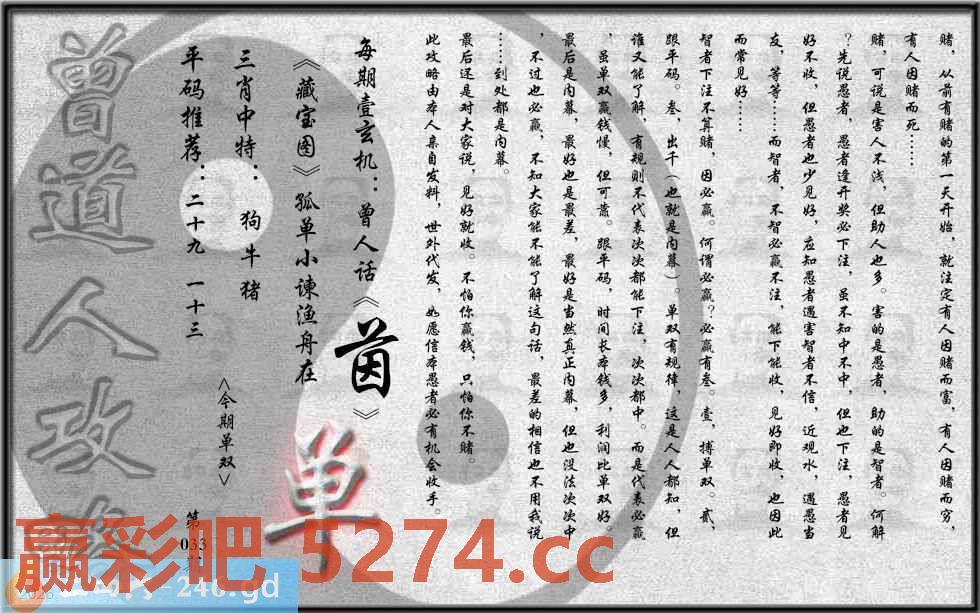 赌，从前有赌的第一天开始，就注定有人因赌而富，有人因赌而穷，
有人因赌而死……
赌，可说是害人不浅，但助人也多。害的是愚者，助的是智者。何解
？先说愚者，愚者逢开奖必下注，虽不知中不中，但也下注，愚者见
好不收，但愚者也少见好，应知愚者遇害智者不信，近观水，遇愚当
友，等等……而智者，不智必赢不注，能下能收，见好即收，也因此
而常见好……
智者下注不算赌，因必赢。何谓必赢？必赢有叁。壹，搏单双。贰，
跟平码。叁，出千（也就是内幕）。单双有规律，这是人人都知，但
谁又能了解，有规则不代表次次都能下注，次次都中。而是代表必赢
，虽单双赢钱慢，但可靠。跟平码，时间长本钱多，利润比单双好。
最后是内幕，最好也是最差，最好是当然真正内幕，但也没法次次中
，不过也必赢，不知大家能不能了解这句话，最差的相信也不用我说
……到处都是内幕。
最后还是对大家说，见好就收。不怕你赢钱，只怕你不赌。
此攻略由本人亲自发料，世外代发，如愿信本愚者必有机会收手。
每期壹玄机：曾人话《茵》
《藏宝图》孤单小谏渔舟在
三肖中特：狗牛猪
平码推荐：二十九 一十三
<今期单双>
单
第033期
曾道人攻略
赢彩吧 5274.cc
246.gd